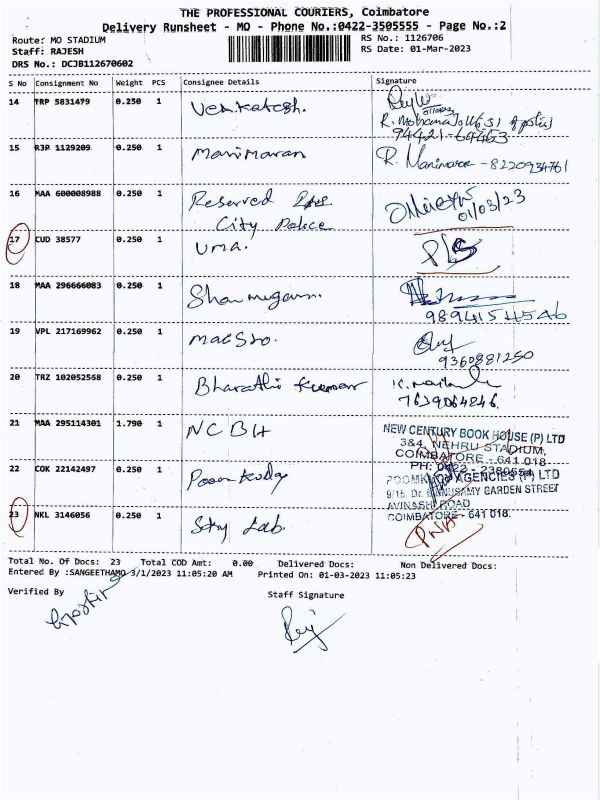 THE PROFESSIONAL COURIERS, Coimbatore
Delivery Runsheet - MO - Phone No.:0422-3505555 - Page No.:2
Route: MO STADIUM
RS No.: 1126706
Staff: RAJESH
RS Date: 01-Mar-2023
DRS No.: DCJB112670602
S No Consignment No Weight PCS Consignee Details Signature
14 TRP 5831479 0.250 1 Venkatesh.
94421-69463
15 RJR 1129209 0.250 1 Manimaran R. Manimaran - 8220934761
16 MAA 600008988 0.250 1 Reserved
City Police
01/03/23
17 CUD 38577 0.250 1 Uma.
18 MAA 296666083 0.250 1 Shanmugam.
19 VPL 217169962 0.250 1 Maesto.
9360881250
20 TRZ 102052568 0.250 1 Bharathi Kumar
7639064246.
21 MAA 295114301 1.790 1 NCBH
NEW CENTURY BOOK HOUSE (P) LTD
3&4, NEHRU STADIUM,
COIMBATORE - 641 018
PH: 0422 - 2380554
22 COK 22142497 0.250 1
AGENCIES (P) LTD
GARDEN STREET
AVINASHI ROAD
COIMBATORE - 641 018.
23 NKL 3146056 0.250 1 Sky Lab.
Total No. Of Docs: 23 Total COD Amt: 0.00 Delivered Docs: Non Delivered Docs:
Entered By :SANGEETHAMO 3/1/2023 11:05:20 AM Printed On: 01-03-2023 11:05:23
Verified By
Staff Signature